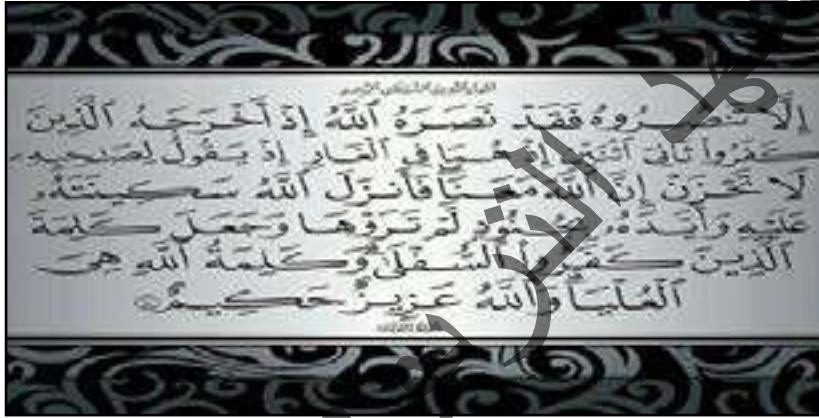 إِلَّا تَنصُرُوهُ فَقَدْ نَصَرَهُ ٱللَّهُ إِذْ أَخْرَجَهُ ٱلَّذِينَ
كَفَرُوا۟ ثَانِىَ ٱثْنَيْنِ إِذْ هُمَا فِى ٱلْغَارِ إِذْ يَقُولُ لِصَـٰحِبِهِۦ
لَا تَحْزَنْ إِنَّ ٱللَّهَ مَعَنَا فَأَنزَلَ ٱللَّهُ سَكِينَتَهُۥ
عَلَيْهِ وَأَيَّدَهُۥ بِجُنُودٍ لَّمْ تَرَوْهَا وَجَعَلَ كَلِمَةَ
ٱلَّذِينَ كَفَرُوا۟ ٱلسُّفْلَىٰ وَكَلِمَةُ ٱللَّهِ هِىَ
ٱلْعُلْيَا وَٱللَّهُ عَزِيزٌ حَكِيمٌ